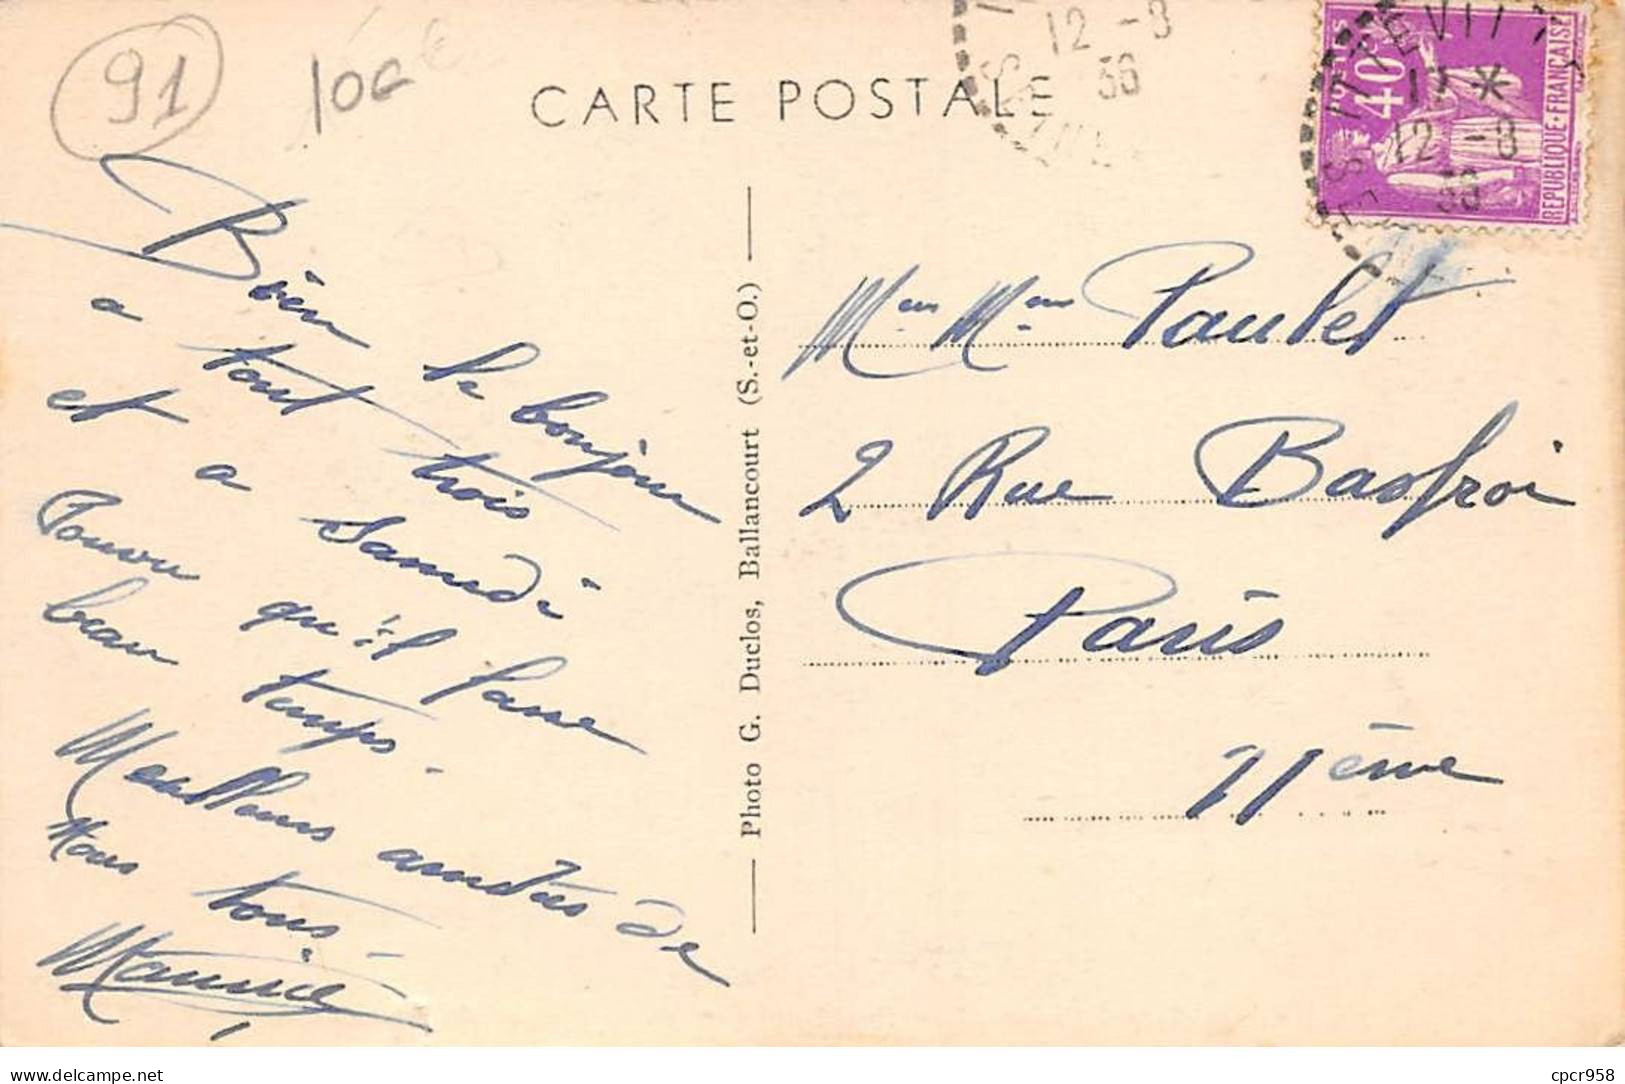 91
10€
CARTE POSTALE
12 -8
36
POSTES
40c
REPUBLIQUE-FRANÇAISE
17 *
12 -8
36
Bien le bonjour
a tout trois
et a Samedi
Pourvu qu'il fasse
beau temps.
Meilleurs amitiés de
Nous tous
Maurice
Photo G. Duclos, Ballancourt (S.-et-O.)
Paulet
2 Rue Basfroi
Paris
11ème
delcampe.net
cpcr958